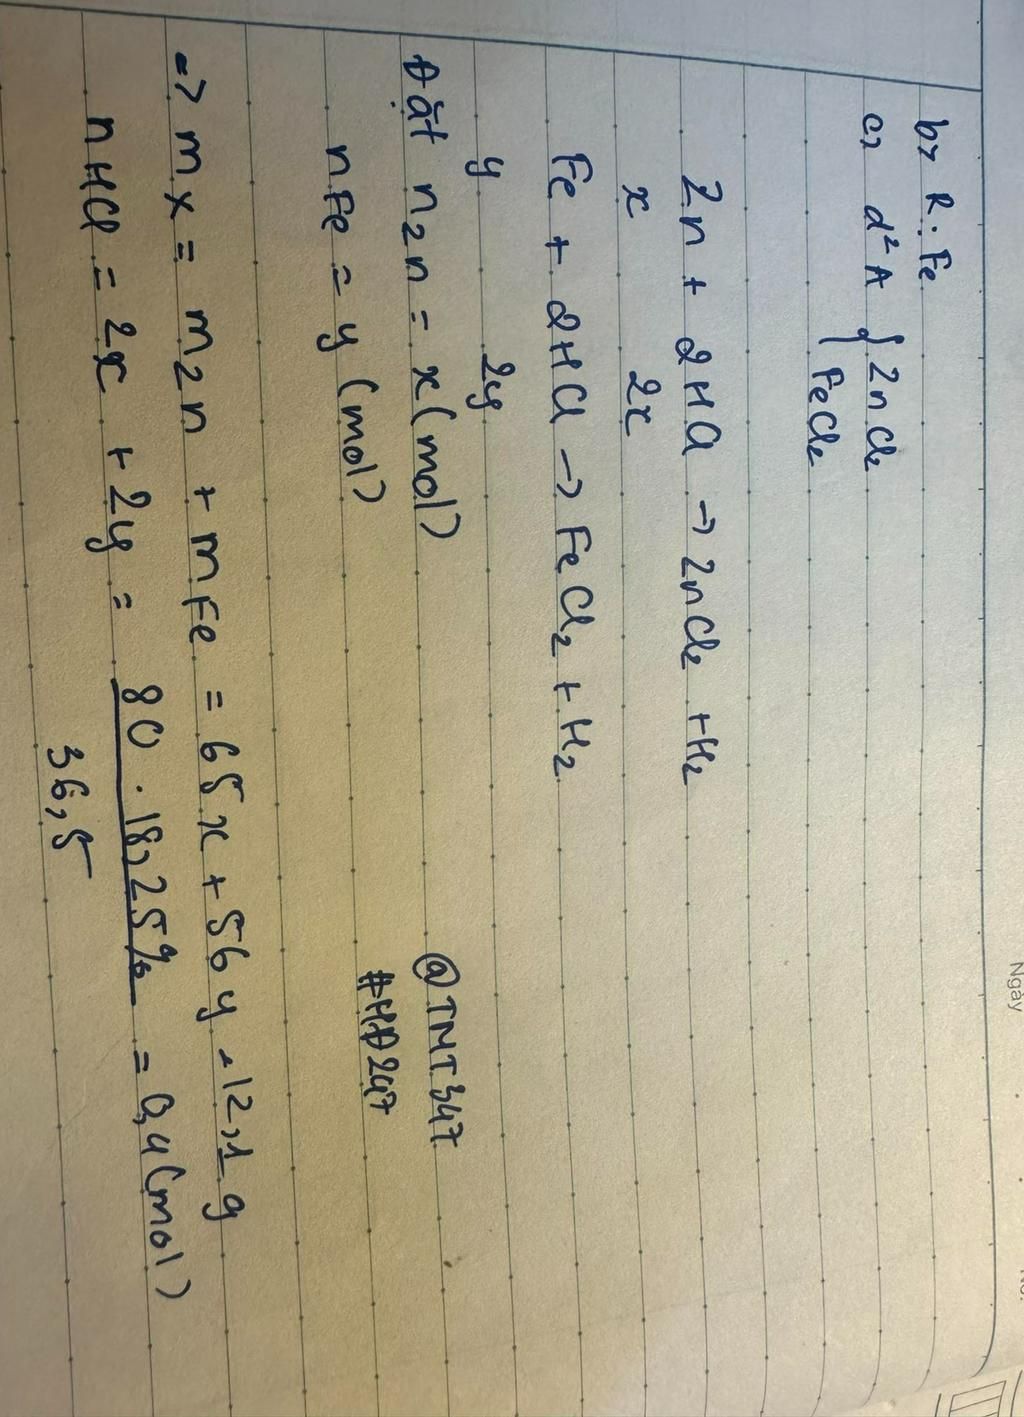 Ngày
b> R : Fe
c> d² A { ZnCl₂
FeCl₂
Zn + 2HCl → ZnCl₂ + H₂
x 2x
Fe + 2HCl → FeCl₂ + H₂
y 2y
Đặt nZn = x (mol) @TMT347
nFe = y (mol) #HĐ247
=> mX = mZn + mFe = 65x + 56y = 12,1g
nHCl = 2x + 2y = 80 . 18,25% = 0,4 (mol)
36,5